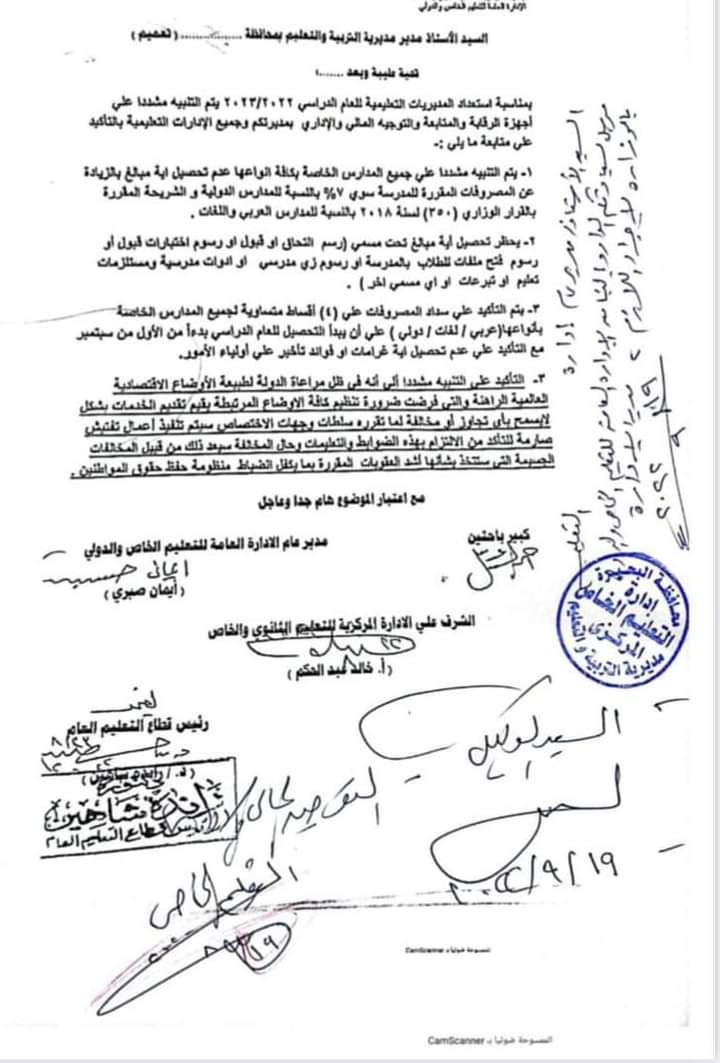 الإدارة العامة للتعليم الخاص والدولي
السيد الأستاذ مدير مديرية التربية والتعليم بمحافظة ................( تعميم )
تحية طيبة وبعد ......؛
بمناسبة استعداد المديريات التعليمية للعام الدراسي ٢٠٢٣/٢٠٢٢ يتم التنبيه مشددا علي
أجهزة الرقابة والمتابعة والتوجيه المالي والإداري بمديرتكم وجميع الإدارات التعليمية بالتأكيد
علي متابعة ما يلي :-
١- يتم التنبيه مشددا علي جميع المدارس الخاصة بكافة انواعها عدم تحصيل اية مبالغ بالزيادة
عن المصروفات المقررة للمدرسة سوي ٧% بالنسبة للمدارس الدولية و الشريحة المقررة
بالقرار الوزاري (٣٥٠) لسنة ٢٠١٨ بالنسبة للمدارس العربي واللغات .
٢- يحظر تحصيل أية مبالغ تحت مسمي (رسم التحاق او قبول او رسوم اختبارات قبول أو
رسوم فتح ملفات للطلاب بالمدرسة او رسوم زي مدرسي او ادوات مدرسية ومستلزمات
تعليم او تبرعات او اي مسمي اخر ) .
٣- يتم التأكيد علي سداد المصروفات علي (٤) أقساط متساوية لجميع المدارس الخاصة
بأنواعها(عربي / لغات / دولي ) علي أن يبدأ التحصيل للعام الدراسي بدءاً من الأول من سبتمبر
مع التأكيد علي عدم تحصيل اية غرامات او فوائد تأخير علي أولياء الأمور.
٣- التأكيد على التنبيه مشددا إلى أنه في ظل مراعاة الدولة لطبيعة الأوضاع الاقتصادية
العالمية الراهنة والتي فرضت ضرورة تنظيم كافة الاوضاع المرتبطة بقيم تقديم الخدمات بشكل
لايسمح بأى تجاوز أو مخالفة لما تقرره سلطات وجهات الاختصاص سيتم تنفيذ أعمال تفتيش
صارمة للتأكد من الالتزام بهذه الضوابط والتعليمات وحال المخالفة سيعد ذلك من قبيل المخالفات
الجسيمة التي ستتخذ بشأنها أشد العقوبات المقررة بما يكفل انضباط منظومة حفظ حقوق المواطنين .
مع اعتبار الموضوع هام جدا وعاجل
كبير باحثين
مدير عام الادارة العامة للتعليم الخاص والدولي
إيمان
( أيمان صبري )
الشرف علي الادارة المركزية للتعليم الثانوي والخاص
( أ. خالد عبد الحكم )
رئيس قطاع التعليم العام
( د. / راندة شاهين )
راندة شاهين
رئيس قطاع التعليم العام
محافظة البحيرة
إدارة
التعليم الخاص
المركزي
مديرية التربية والتعليم
السيد الأستاذ مدير عام إدارة
التعليم
السيد الوكيل
٢٠٢٢/٩/١٩
التعليم الخاص
الممسوحة ضوئيا بـ CamScanner
الممسوحة ضوئيا بـ CamScanner